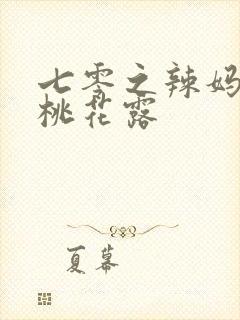 七零之辣妈
桃花露
夏幕